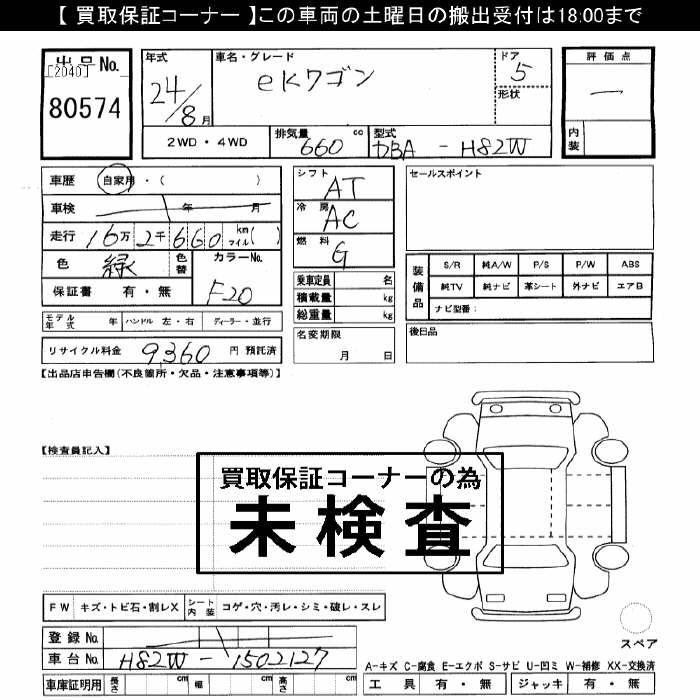 【 買取保証コーナー 】この車両の土曜日の搬出受付は18:00まで
出品No.
[2040]
80574
年式
24/8月
車名・グレード
eKワゴン
ドア
5
形状
評価点
一
内装
2WD・4WD
排気量
660 cc
型式
DBA - H82W
車歴 自家用・( )
車検 年 月
走行 16万2千660 km マイル( )
色 緑 色替
カラーNo.
F20
保証書 有・無
シフト
AT
冷房
AC
燃料
G
乗車定員 名
積載量 kg
総重量 kg
名変期限
月 日
セールスポイント
装備品
S/R 純A/W P/S P/W ABS
純TV 純ナビ 革シート 外ナビ エアB
ナビ型番:
後日品
モデル年式 年 ハンドル 左・右 ディーラー・並行
リサイクル料金 9,360 円 預託済
【出品店申告欄(不良箇所・欠品・注意事項等)】
【検査員記入】
買取保証コーナーの為
未検査
FW キズ・トビ石・割レX シート内装 コゲ・穴・汚レ・シミ・破レ・スレ
登録No.
車台No. H82W - 1502127
車庫証明用 長さ cm 幅 cm 高さ cm
スペア
A-キズ C-腐食 E-エクボ S-サビ U-凹ミ W-補修 XX-交換済
工具 有・無 ジャッキ 有・無